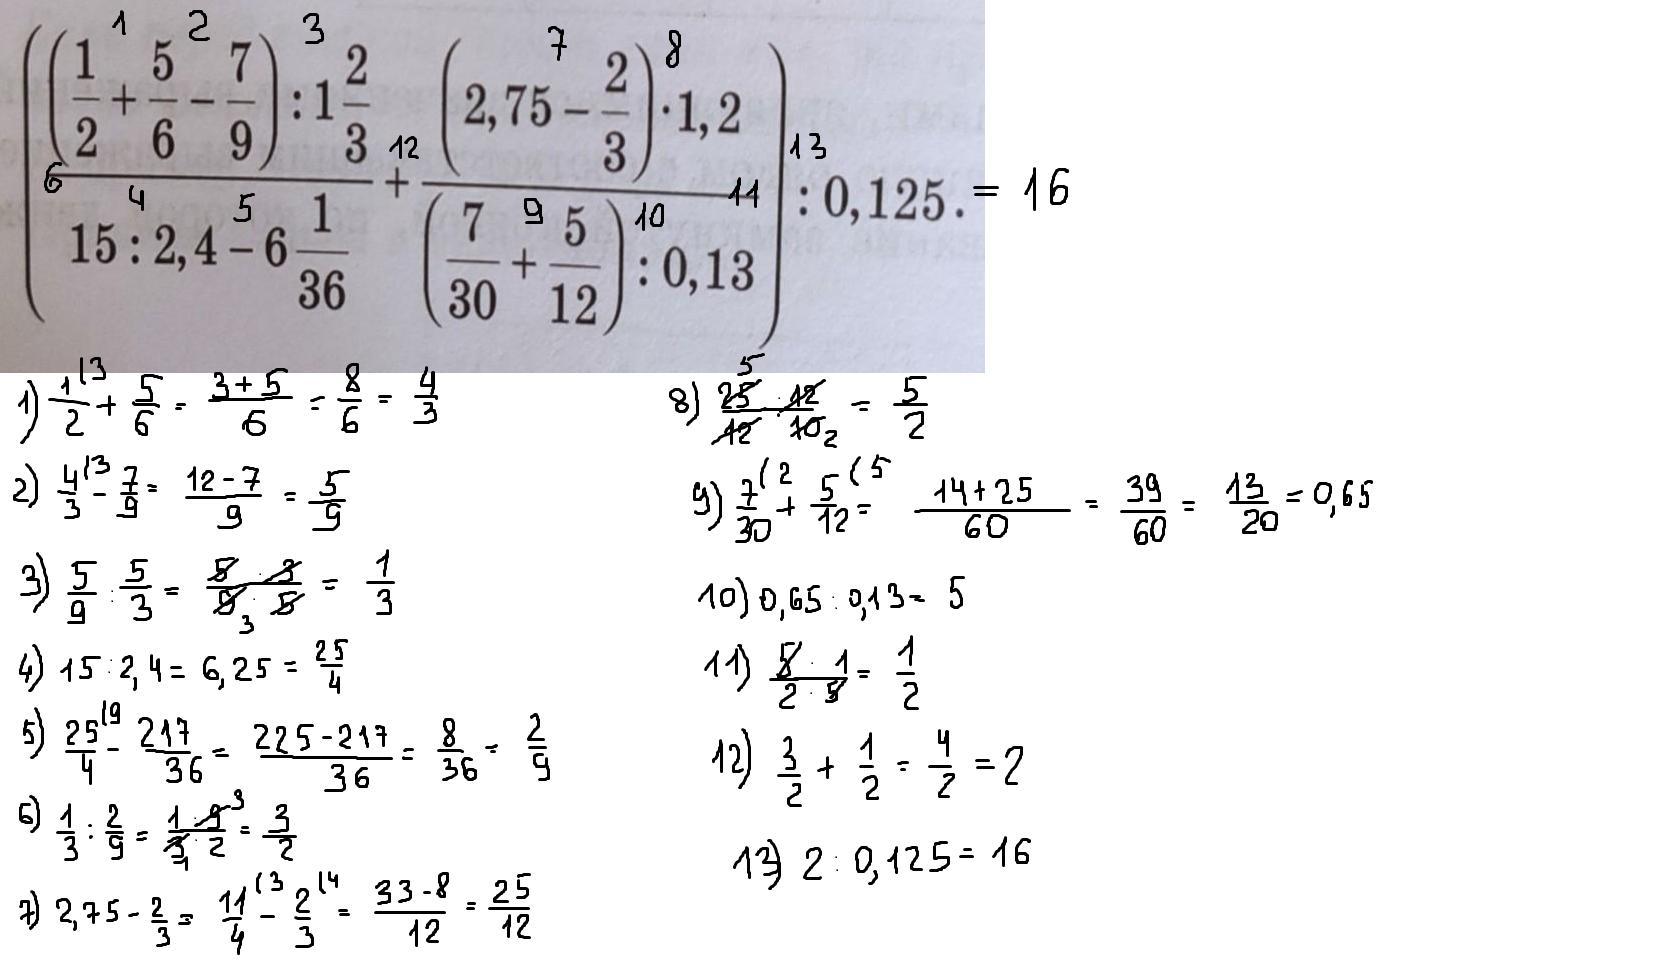 ((1/2 + 5/6 − 7/9) : 1 2/3)/(15 : 2,4 − 6 1/36) + ((2,75 − 2/3) · 1,2)/((7/30 + 5/12) : 0,13)) : 0,125. = 16
1 2 3 7 8
6 4 5 12 9 10 11 13
1) 1/2 (3 + 5/6 = (3+5)/6 = 8/6 = 4/3
2) 4/3 (3 − 7/9 = (12−7)/9 = 5/9
3) 5/9 : 5/3 = (5 · 3)/(9 · 5) 3 = 1/3
4) 15 : 2,4 = 6,25 = 25/4
5) 25/4 (9 − 217/36 = (225−217)/36 = 8/36 = 2/9
6) 1/3 : 2/9 = (1 · 9 3)/(3 1 · 2) = 3/2
7) 2,75 − 2/3 = 11/4 (3 − 2/3 (4 = (33−8)/12 = 25/12
8) (5 25 · 12)/(12 · 10 2) = 5/2
9) 7/30 (2 + 5/12 (5 = (14+25)/60 = 39/60 = 13/20 = 0,65
10) 0,65 : 0,13 = 5
11) (5 · 1)/(2 · 5) = 1/2
12) 3/2 + 1/2 = 4/2 = 2
13) 2 : 0,125 = 16